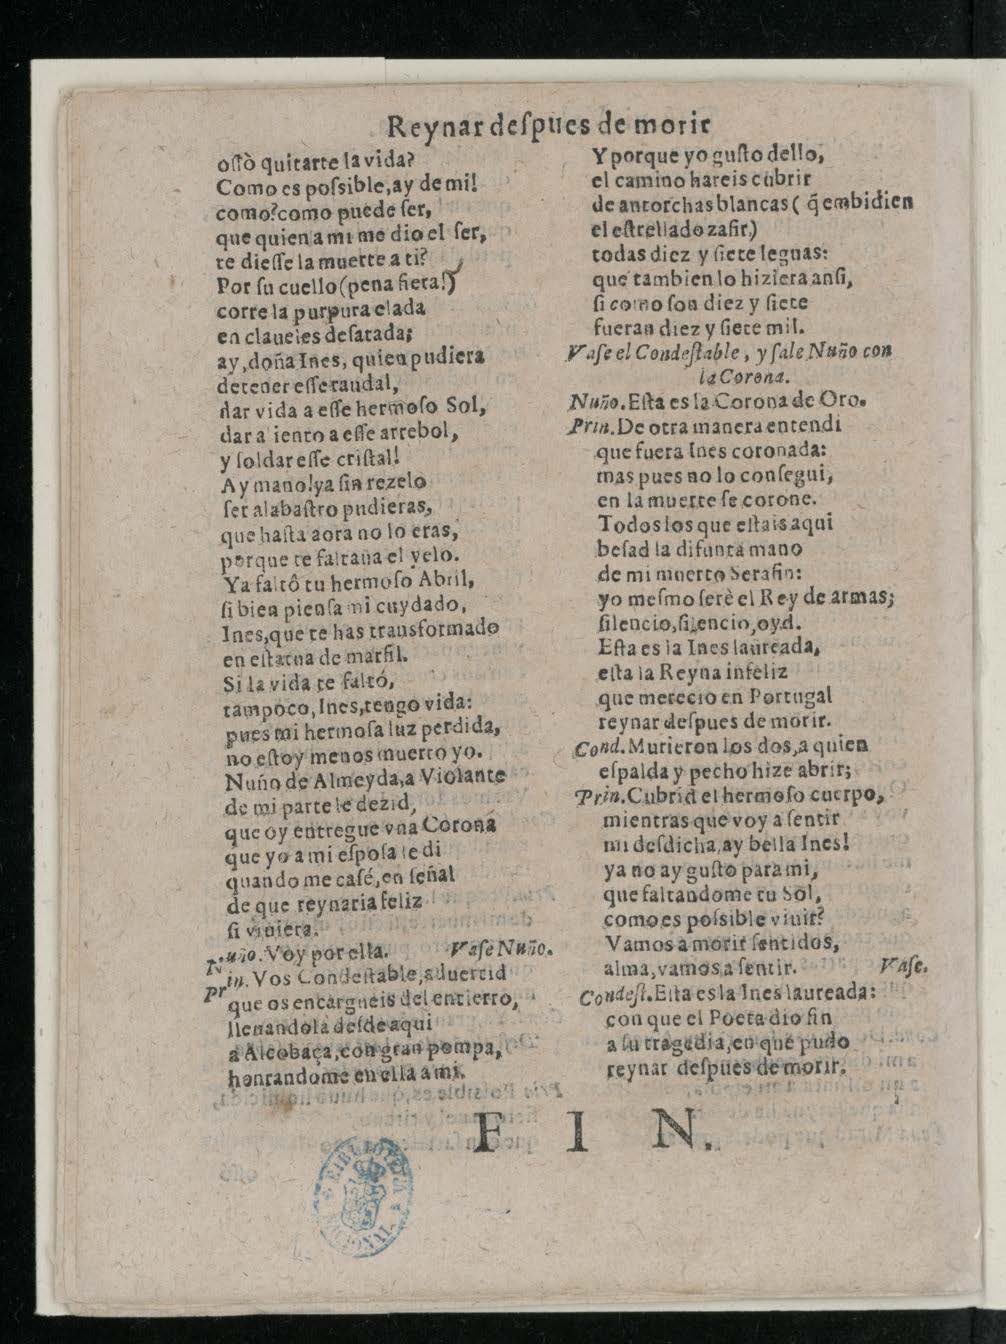 Reynar deſpues de morir
oſſò quitarte la vida?
Como es poſsible, ay de mi!
como? como puede ſer,
que quien a mi me dio el ſer,
te dieſſe la muerte a ti?
Por ſu cuello (pena fiera!)
corre la purpura elada
en claueles deſatada;
ay, doña Ines, quien pudiera
detener eſſe raudal,
dar vida a eſſe hermoſo Sol,
dar aliento a eſſe arrebol,
y ſoldar eſſe criſtal!
Ay mano! ya ſin rezelo
ſer alabaſtro pudieras,
que haſta aora no lo eras,
porque te faltaua el yelo.
Ya faltô tu hermoſo Abril,
ſi bien pienſa mi cuydado,
Ines, que te has transformado
en eſtatua de marfil.
Si la vida te faltó,
tampoco, Ines, tengo vida:
pues mi hermoſa luz perdida,
no eſtoy menos muerto yo.
Nuño de Almeyda, a Violante
de mi parte le dezid,
que oy entregue vna Corona
que yo a mi eſpoſa le di
quando me caſé, en ſeñal
de que reynaria feliz
ſi viuiera.
Nuño. Voy por ella. Vaſe Nuño.
Prin. Vos Condeſtable, aduertid
que os encargueis del entierro,
lleuandola deſde aqui
a Alcobaça, con gran pompa,
honrandome en ella a mi.
Y porque yo guſto dello,
el camino hareis cubrir
de antorchas blancas ( q̃ embidien
el eſtrellado zafir.)
todas diez y ſiete leguas:
que tambien lo hiziera anſi,
ſi como ſon diez y ſiete
fueran diez y ſiete mil.
Vaſe el Condeſtable, y ſale Nuño con
la Corona.
Nuño. Eſta es la Corona de Oro.
Prin. De otra manera entendi
que fuera Ines coronada:
mas pues no lo conſegui,
en la muerte ſe corone.
Todos los que eſtais aqui
beſad la difunta mano
de mi muerto Serafin:
yo meſmo ſerè el Rey de armas;
ſilencio, ſilencio, oyd.
Eſta es la Ines laureada,
eſta la Reyna infeliz
que merecio en Portugal
reynar deſpues de morir.
Cond. Murieron los dos, a quien
eſpalda y pecho hize abrir;
Prin. Cubrid el hermoſo cuerpo,
mientras que voy a ſentir
mi deſdicha, ay bella Ines!
ya no ay guſto para mi,
que faltandome tu Sol,
como es poſsible viuir?
Vamos a morir ſentidos,
alma, vamos a ſentir. Vaſe.
Condeſt. Eſta es la Ines laureada:
con que el Poeta dio fin
a ſu tragedia, en que pudo
reynar deſpues de morir.
F I N.
BIBLIOTECA NACIONAL